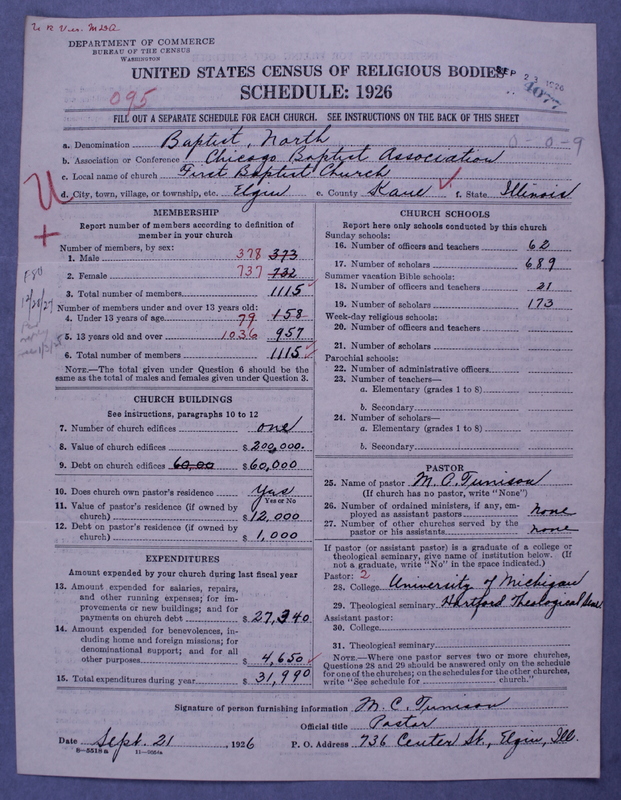 DEPARTMENT OF COMMERCE
BUREAU OF THE CENSUS
WASHINGTON
UNITED STATES CENSUS OF RELIGIOUS BODIES
SEP 23 1926
SCHEDULE: 1926
4077
095
FILL OUT A SEPARATE SCHEDULE FOR EACH CHURCH. SEE INSTRUCTIONS ON THE BACK OF THIS SHEET
a. Denomination Baptist, North
0-0-9
b. Association or Conference Chicago Baptist Association
c. Local name of church First Baptist Church
d. City, town, village, or township, etc. Elgin e. County Kane f. State Illinois
MEMBERSHIP
Report number of members according to definition of
member in your church
Number of members, by sex:
1. Male 378 373
2. Female 737 732
3. Total number of members 1115
Number of members under and over 13 years old:
4. Under 13 years of age 79 158
5. 13 years old and over 1036 957
6. Total number of members 1115
NOTE.—The total given under Question 6 should be
the same as the total of males and females given under Question 3.
12/28/27
CHURCH BUILDINGS
See instructions, paragraphs 10 to 12
7. Number of church edifices one
8. Value of church edifices $ 200,000.
9. Debt on church edifices 60,00 $ 60,000
10. Does church own pastor's residence Yes
Yes or No
11. Value of pastor's residence (if owned by
church) $ 12,000
12. Debt on pastor's residence (if owned by
church) $ 1,000
EXPENDITURES
Amount expended by your church during last fiscal year
13. Amount expended for salaries, repairs,
and other running expenses; for im-
provements or new buildings; and for
payments on church debt $ 27,340
14. Amount expended for benevolences, in-
cluding home and foreign missions; for
denominational support; and for all
other purposes $ 4,650
15. Total expenditures during year $ 31,990
CHURCH SCHOOLS
Report here only schools conducted by this church
Sunday schools:
16. Number of officers and teachers 62
17. Number of scholars 689
Summer vacation Bible schools:
18. Number of officers and teachers 21
19. Number of scholars 173
Week-day religious schools:
20. Number of officers and teachers
21. Number of scholars
Parochial schools:
22. Number of administrative officers
23. Number of teachers—
a. Elementary (grades 1 to 8)
b. Secondary
24. Number of scholars—
a. Elementary (grades 1 to 8)
b. Secondary
PASTOR
25. Name of pastor M. C. Tunison
(If church has no pastor, write "None")
26. Number of ordained ministers, if any, em-
ployed as assistant pastors none
27. Number of other churches served by the
pastor or his assistants none
If pastor (or assistant pastor) is a graduate of a college or
theological seminary, give name of institution below. (If
not a graduate, write "No" in the space indicated.)
Pastor: 2
28. College University of Michigan
29. Theological seminary Hartford Theological Sem
Assistant pastor:
30. College
31. Theological seminary
NOTE.—Where one pastor serves two or more churches,
Questions 28 and 29 should be answered only on the schedule
for one of the churches; on the schedules for the other churches,
write "See schedule for church."
Signature of person furnishing information M. C. Tunison
Official title Pastor
Date Sept. 21, 1926 P. O. Address 736 Center St., Elgin, Ill.
8—5518a